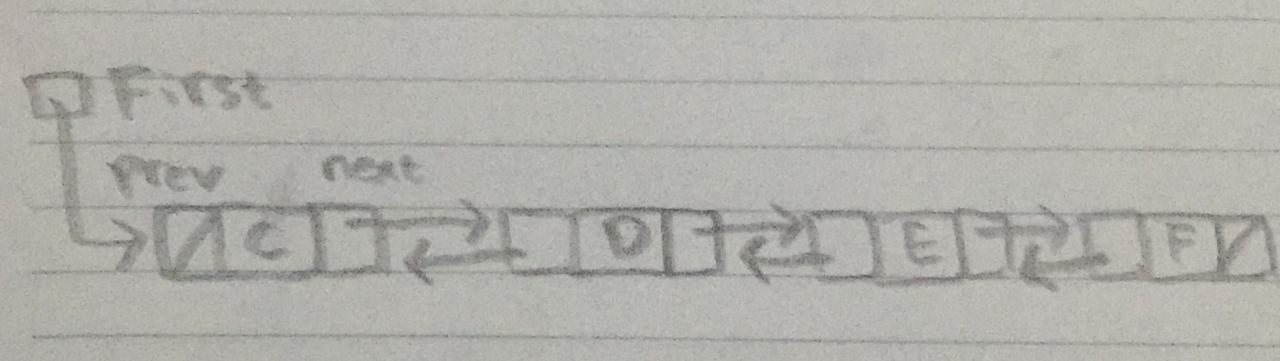 First
prev next
C D E F